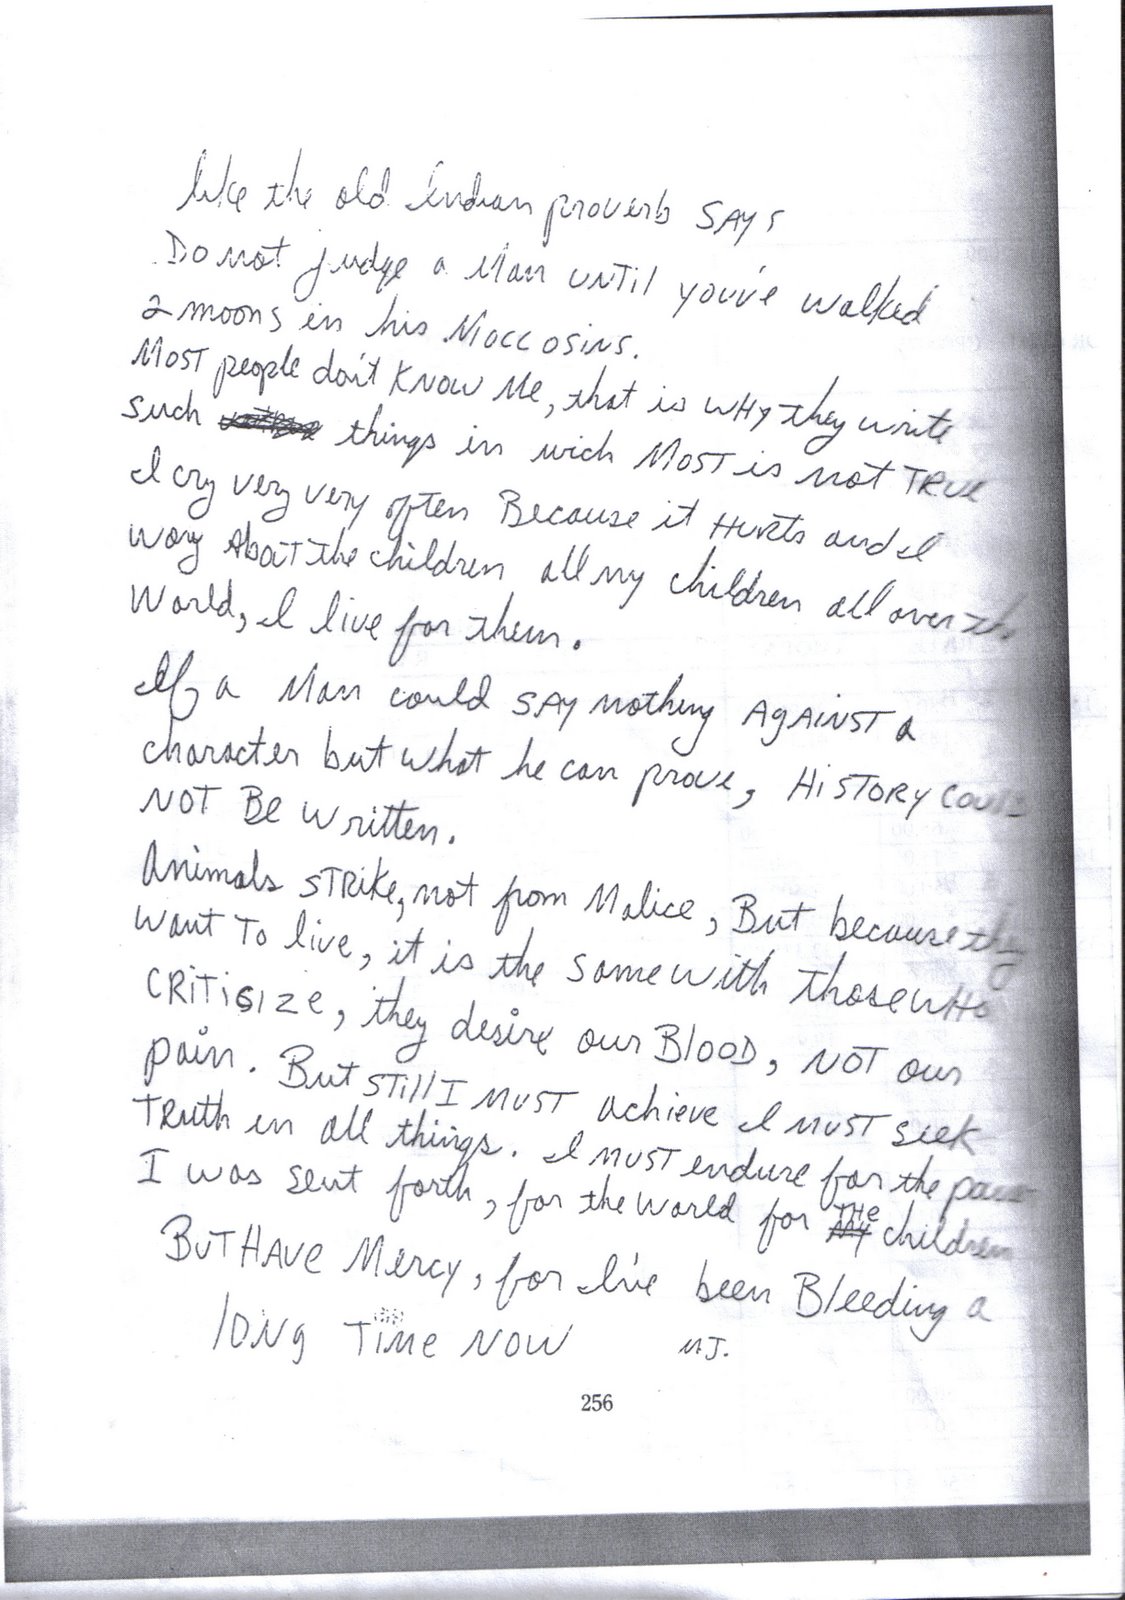 like the old indian proverb says
Do not judge a man until you've walked
2 moons in his Moccosins.
Most people don't know me, that is why they write
such things in wich most is not true
I cry very very often Because it hurts and I
wory about the children all my children all over the
world, I live for them.
If a man could say nothing against a
character but what he can prove, history could
not be written.
Animals strike, not from malice, But because they
want to live, it is the same with those who
critisize, they desire our Blood, not our
pain. But still I must achieve I must seek
truth in all things. I must endure for the power
I was sent forth, for the world for the children
But have mercy, for I've been Bleeding a
long time now MJ.
256